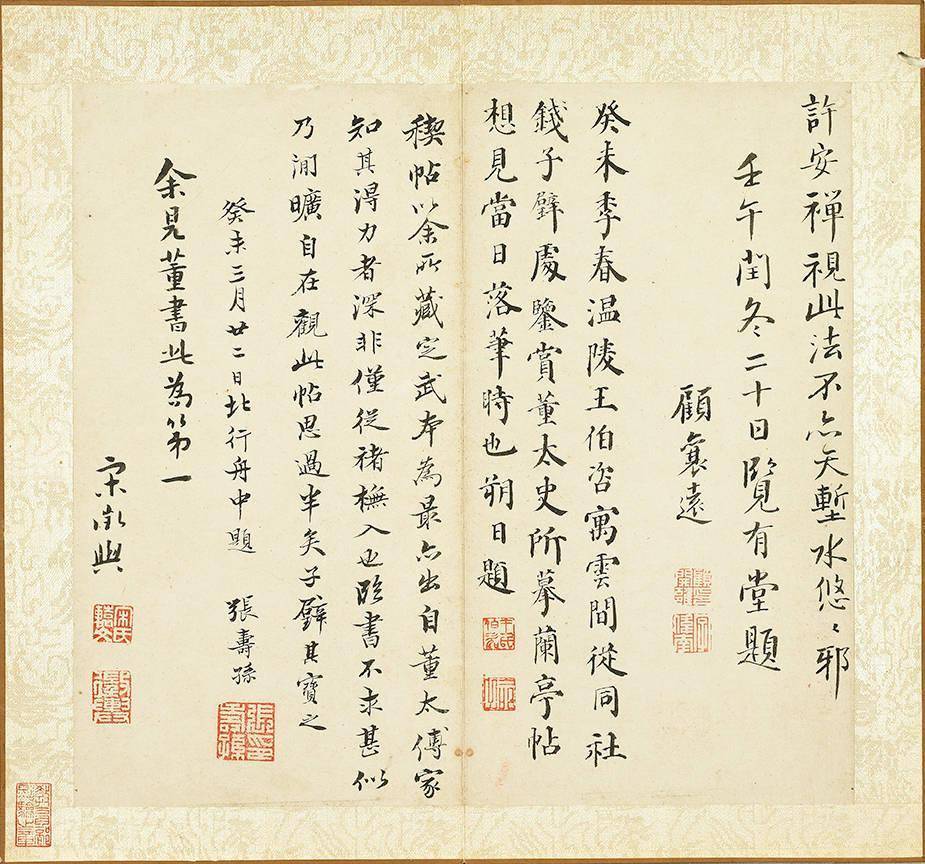 許安禪視此法不亦天塹水悠〻邪
壬午閏冬二十日覽有堂題
顧襄遠
癸未季春温陵王伯咨寓雲間從同社
錢子璧處鑒賞董太史所摹蘭亭帖
想見當日落筆時也朔日題
稧帖以余所藏定武本為最亦出自董太傅家
知其淂力者深非僅從褚橅入也臨書不求甚似
乃閒曠自在觀此帖思過半矣子璧其寶之
癸未三月廿二日北行舟中題 張壽孫
余見董書此為第一
宋徵輿